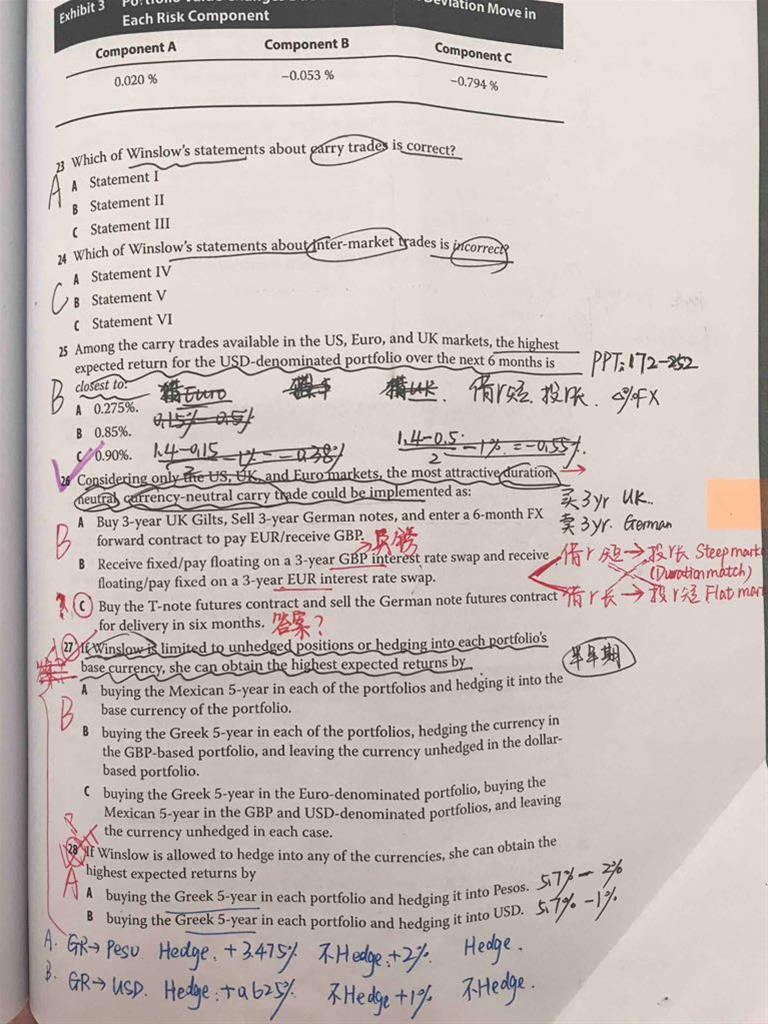 Exhibit 3
Deviation Move in
Each Risk Component
Component A
Component B
Component C
0.020 %
−0.053 %
−0.794 %
23 Which of Winslow's statements about carry trades is correct?
A
A Statement I
B Statement II
C Statement III
24 Which of Winslow's statements about inter-market trades is incorrect?
C
A Statement IV
B Statement V
C Statement VI
25 Among the carry trades available in the US, Euro, and UK markets, the highest
expected return for the USD-denominated portfolio over the next 6 months is
closest to:
PPT: 172-252
B
Euro
UK
借r短 投r长
A 0.275%.
0.15% 0.5%
B 0.85%.
C 0.90%.
1.4-0.15
-1% = -0.38%
1.4-0.5
2
-1% = -0.55%
26 Considering only the US, UK, and Euro markets, the most attractive duration-
neutral, currency-neutral carry trade could be implemented as:
买 3yr UK.
卖 3yr. German
B
A Buy 3-year UK Gilts, Sell 3-year German notes, and enter a 6-month FX
forward contract to pay EUR/receive GBP.
B Receive fixed/pay floating on a 3-year GBP interest rate swap and receive
floating/pay fixed on a 3-year EUR interest rate swap.
借r短 → 投r长 Steep mark
(Duration match)
借r长 → 投r短 Flat mar
?
C Buy the T-note futures contract and sell the German note futures contract
for delivery in six months.
答案?
27 If Winslow is limited to unhedged positions or hedging into each portfolio's
base currency, she can obtain the highest expected returns by
半年期
B
A buying the Mexican 5-year in each of the portfolios and hedging it into the
base currency of the portfolio.
B buying the Greek 5-year in each of the portfolios, hedging the currency in
the GBP-based portfolio, and leaving the currency unhedged in the dollar-
based portfolio.
C buying the Greek 5-year in the Euro-denominated portfolio, buying the
Mexican 5-year in the GBP and USD-denominated portfolios, and leaving
the currency unhedged in each case.
28 If Winslow is allowed to hedge into any of the currencies, she can obtain the
highest expected returns by
A
A buying the Greek 5-year in each portfolio and hedging it into Pesos.
5.7% - 2%
B buying the Greek 5-year in each portfolio and hedging it into USD.
5.7% - 1%
A. GR → Peso Hedge. +3.475% 不Hedge:+2% Hedge.
B. GR → USD. Hedge:+0.625% 不Hedge +1% 不Hedge.